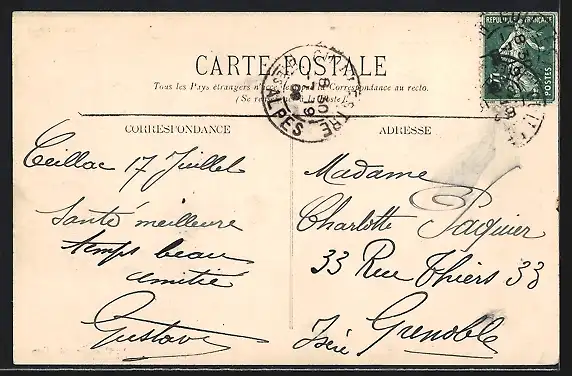 CARTE POSTALE
Tous les Pays étrangers n'acceptent pas la Correspondance au recto.
(Se renseigner à la Poste).
RÉPUBLIQUE FRANÇAISE
POSTES
ALPES
CORRESPONDANCE
Ceillac 17 Juillet
Santé meilleure
temps beau
amitié
Gustave
ADRESSE
Madame
Charlotte Paquier
33 Rue Thiers 33
Isère Grenoble